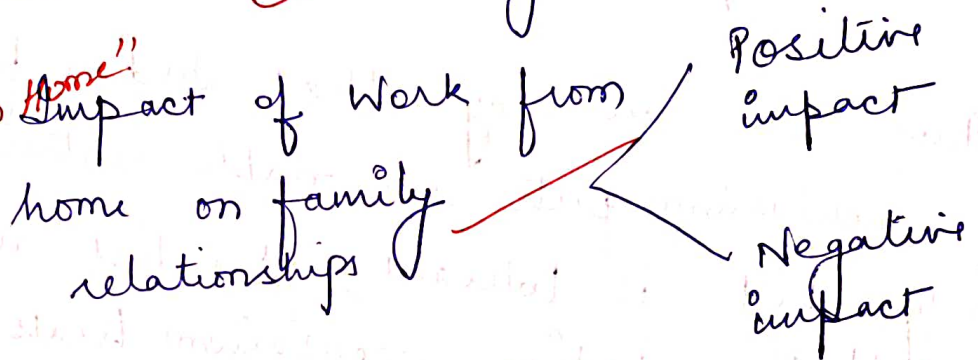 Home"
Impact of Work from
home on family
relationships
Positive
impact
Negative
impact